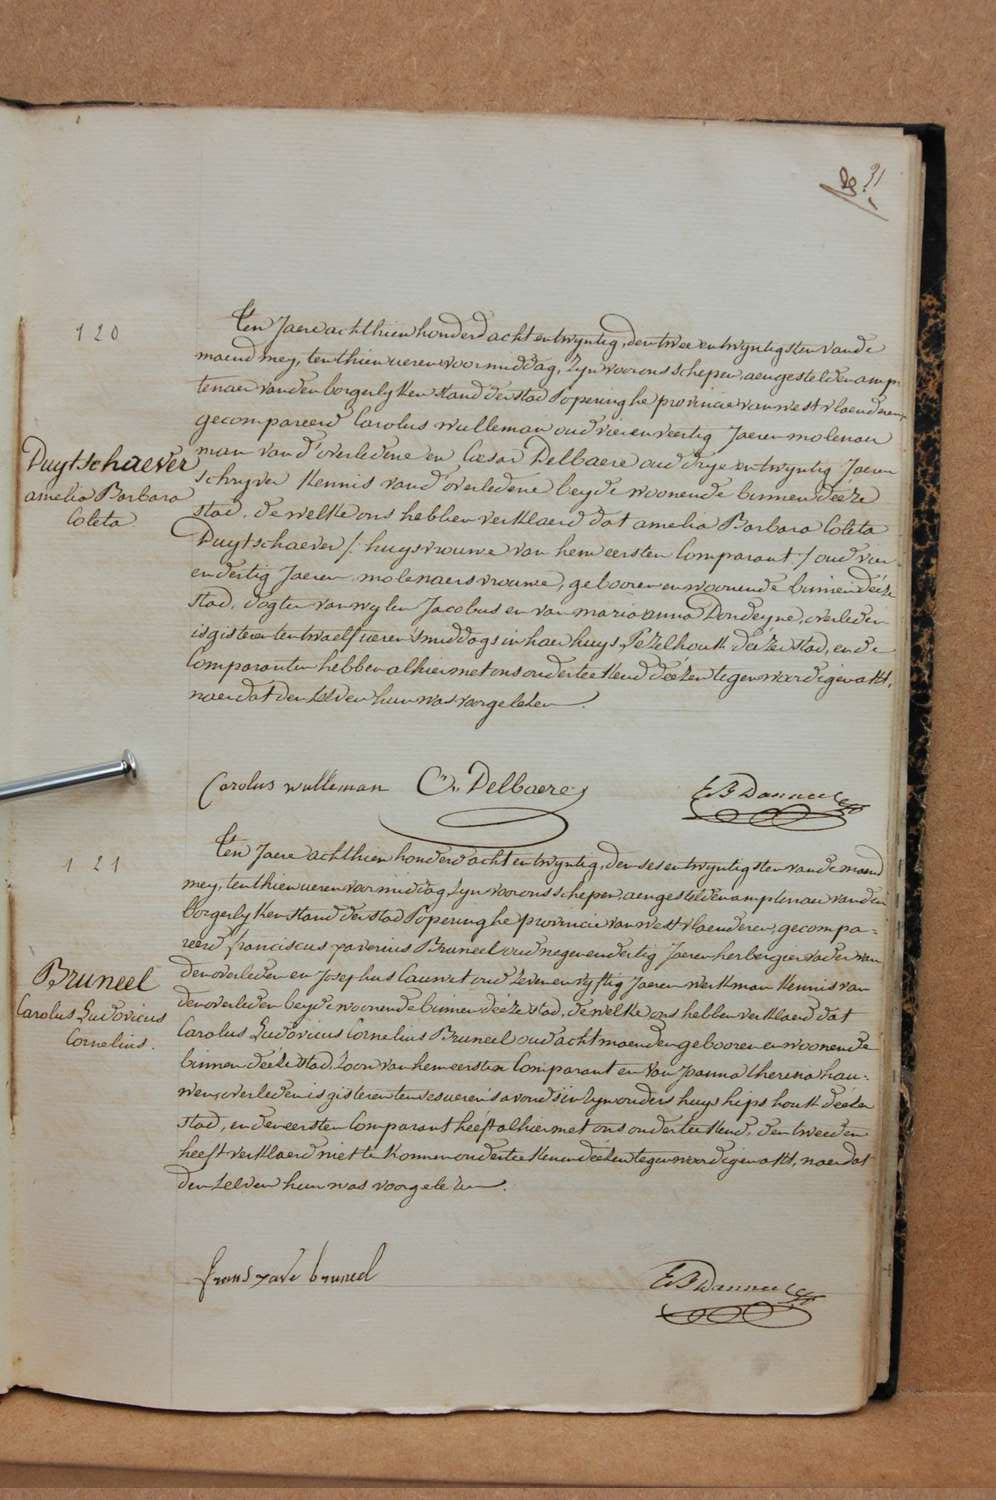 31
120
Duytschaever
amelia Barbara
Coleta
Ten Jaere achthien honderd acht en twyntig, den twee en twyntigsten van de
maend mey, ten thien ueren voormiddag, zyn voor ons schepen, aengestelden amp-
tenaer van den borgerlyken stand der stad Poperinghe provincie van westvlaenderen,
gecompareerd Carolus Wulleman oud vier en veertig Jaeren molenaer
man van d'overledene en Cæsar Delbaere oud drye en twyntig Jaeren
schryver kennis van d'overledene beyde woonende binnen deeze
stad, de welke ons hebben verklaerd dat amelia Barbara Coleta
Duytschaever /: huysvrouwe van hem eersten Comparant / oud vier
en dertig Jaeren, molenaers vrouwe, gebooren en woonende binnen deeze
stad, dogter van wylen Jacobus en van maria anna Dondeyne, overleden
is gisteren ten twaelf ueren 's middags in haer huys, Pezelhoek deezer stad, en de
Comparanten hebben alhier met ons onderteekend deezen tegenwoordigen akt,
naer dat den zelven hun was voorgelezen.
Carolus wulleman C. Delbaere
121
Bruneel
Carolus Ludovicus
Cornelius.
Ten Jaere achthien honderd acht en twyntig, den ses en twyntigsten van de maend
mey, ten thien ueren voormiddag, zyn voor ons schepen, aengestelden amptenaer van den
borgerlyken stand der stad Poperinghe provincie van westvlaenderen, gecompa-
reerd franciscus xaverius Bruneel oud negen en dertig Jaeren herbergier vader van
den overleden en Josephus Cauwet oud zeven en vyftig Jaeren werkman kennis van
den overleden beyde woonende binnen deeze stad, de welke ons hebben verklaerd dat
Carolus Ludovicus Cornelius Bruneel oud acht maenden gebooren en woonende
binnen deeze stad, zoon van hem eersten Comparant en van Joanna theresia hau-
wen, overleden is gisteren ten ses ueren 's avonds in zyn ouders huys hipshoek deezer
stad, en den eersten Comparant heeft alhier met ons onderteekend, den tweeden
heeft verklaerd niet te konnen onderteekenen deezen tegenwoordigen akt, naer dat
den zelven hun was voorgelezen.
frans xave bruneel